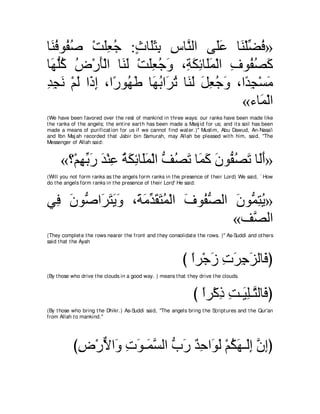 «فُضِّلْنَا عَلَى النَّاسِ بِثَلَاثٍ: جُعِلَتْ صُفُوفُنَا
كَصُفُوفِ الْمَلَائِكَةِ، وَجُعِلَتْ لَنَا الْأَرْضُ كُلُّهَا
مَسْجِدًا، وَجُعِلَ لَنَا تُرَابُهَا طَهُورًا، إِذَا لَمْ نَجِدِ
الْمَاء»
(We have been favored over the rest of mankind in three ways: our ranks have been made like
the ranks of the angels; the entire earth has been made a Masjid for us; and its soil has been
made a means of purification for us if we cannot find water.)" Muslim, Abu Dawud, An-Nasa'i
and Ibn Majah recorded that Jabir bin Samurah, may Allah be pleased with him, said, "The
Messenger of Allah said:
«أَلَا تَصُفُّونَ كَمَا تَصُفُّ الْمَلَائِكَةُ عِنْدَ رَبِّهِمْ؟»
(Will you not form ranks as the angels form ranks in the presence of their Lord) We said, `How
do the angels form ranks in the presence of their Lord' He said:
«يُتِمُّونَ الصُّفُوفَ الْمُتَقَدِّمَةَ، وَيَتَرَاصُّونَ فِي
الصَّف»
(They complete the rows nearer the front and they consolidate the rows. )" As-Suddi and others
said that the Ayah
(فَالزَجِرَتِ زَجْراً )
(By those who drive the clouds in a good way. ) means that they drive the clouds.
(فَالتَّـلِيَـتِ ذِكْراً )
(By those who bring the Dhikr.) As-Suddi said, "The angels bring the Scriptures and the Qur'an
from Allah to mankind."
(إِنَّ إِلَـهَكُمْ لَوَاحِدٌ رَّبُّ السَّمَـوَتِ وَالاٌّرْضِ)